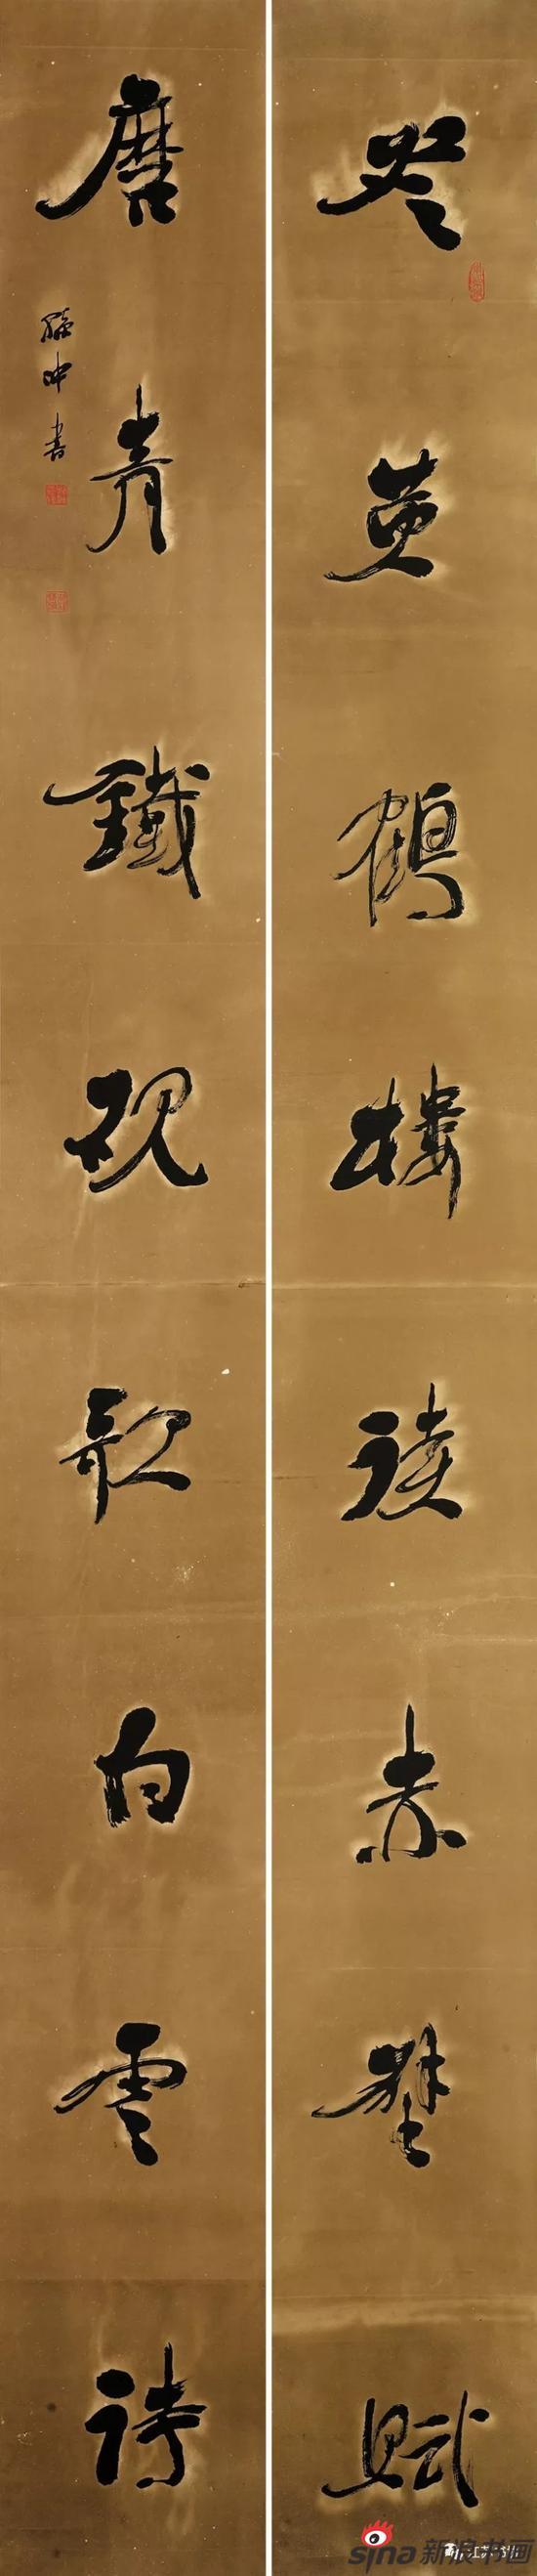 登黄鶴樓讀赤壁賦
磨青鐵硯歌白雲詩
冲書
sina 新浪书画